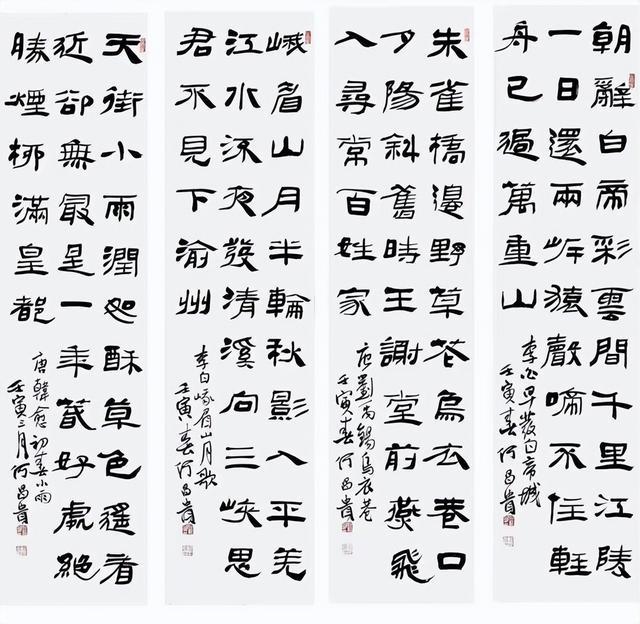 朝辭白帝彩雲間千里江陵
一日還兩岸猿聲啼不住輕
舟已過萬重山
李白早發白帝城
壬寅春何昌貴
朱雀橋邊野草花烏衣巷口
夕陽斜舊時王謝堂前燕飛
入尋常百姓家
唐劉禹錫烏衣巷
壬寅春何昌貴
峨眉山月半輪秋影入平羌
江水流夜發清溪向三峽思
君不見下渝州
李白峨眉山月歌
壬寅春何昌貴
天街小雨潤如酥草色遙看
近卻無最是一年春好處絕
勝煙柳滿皇都
唐韓愈初春小雨
壬寅三月何昌貴